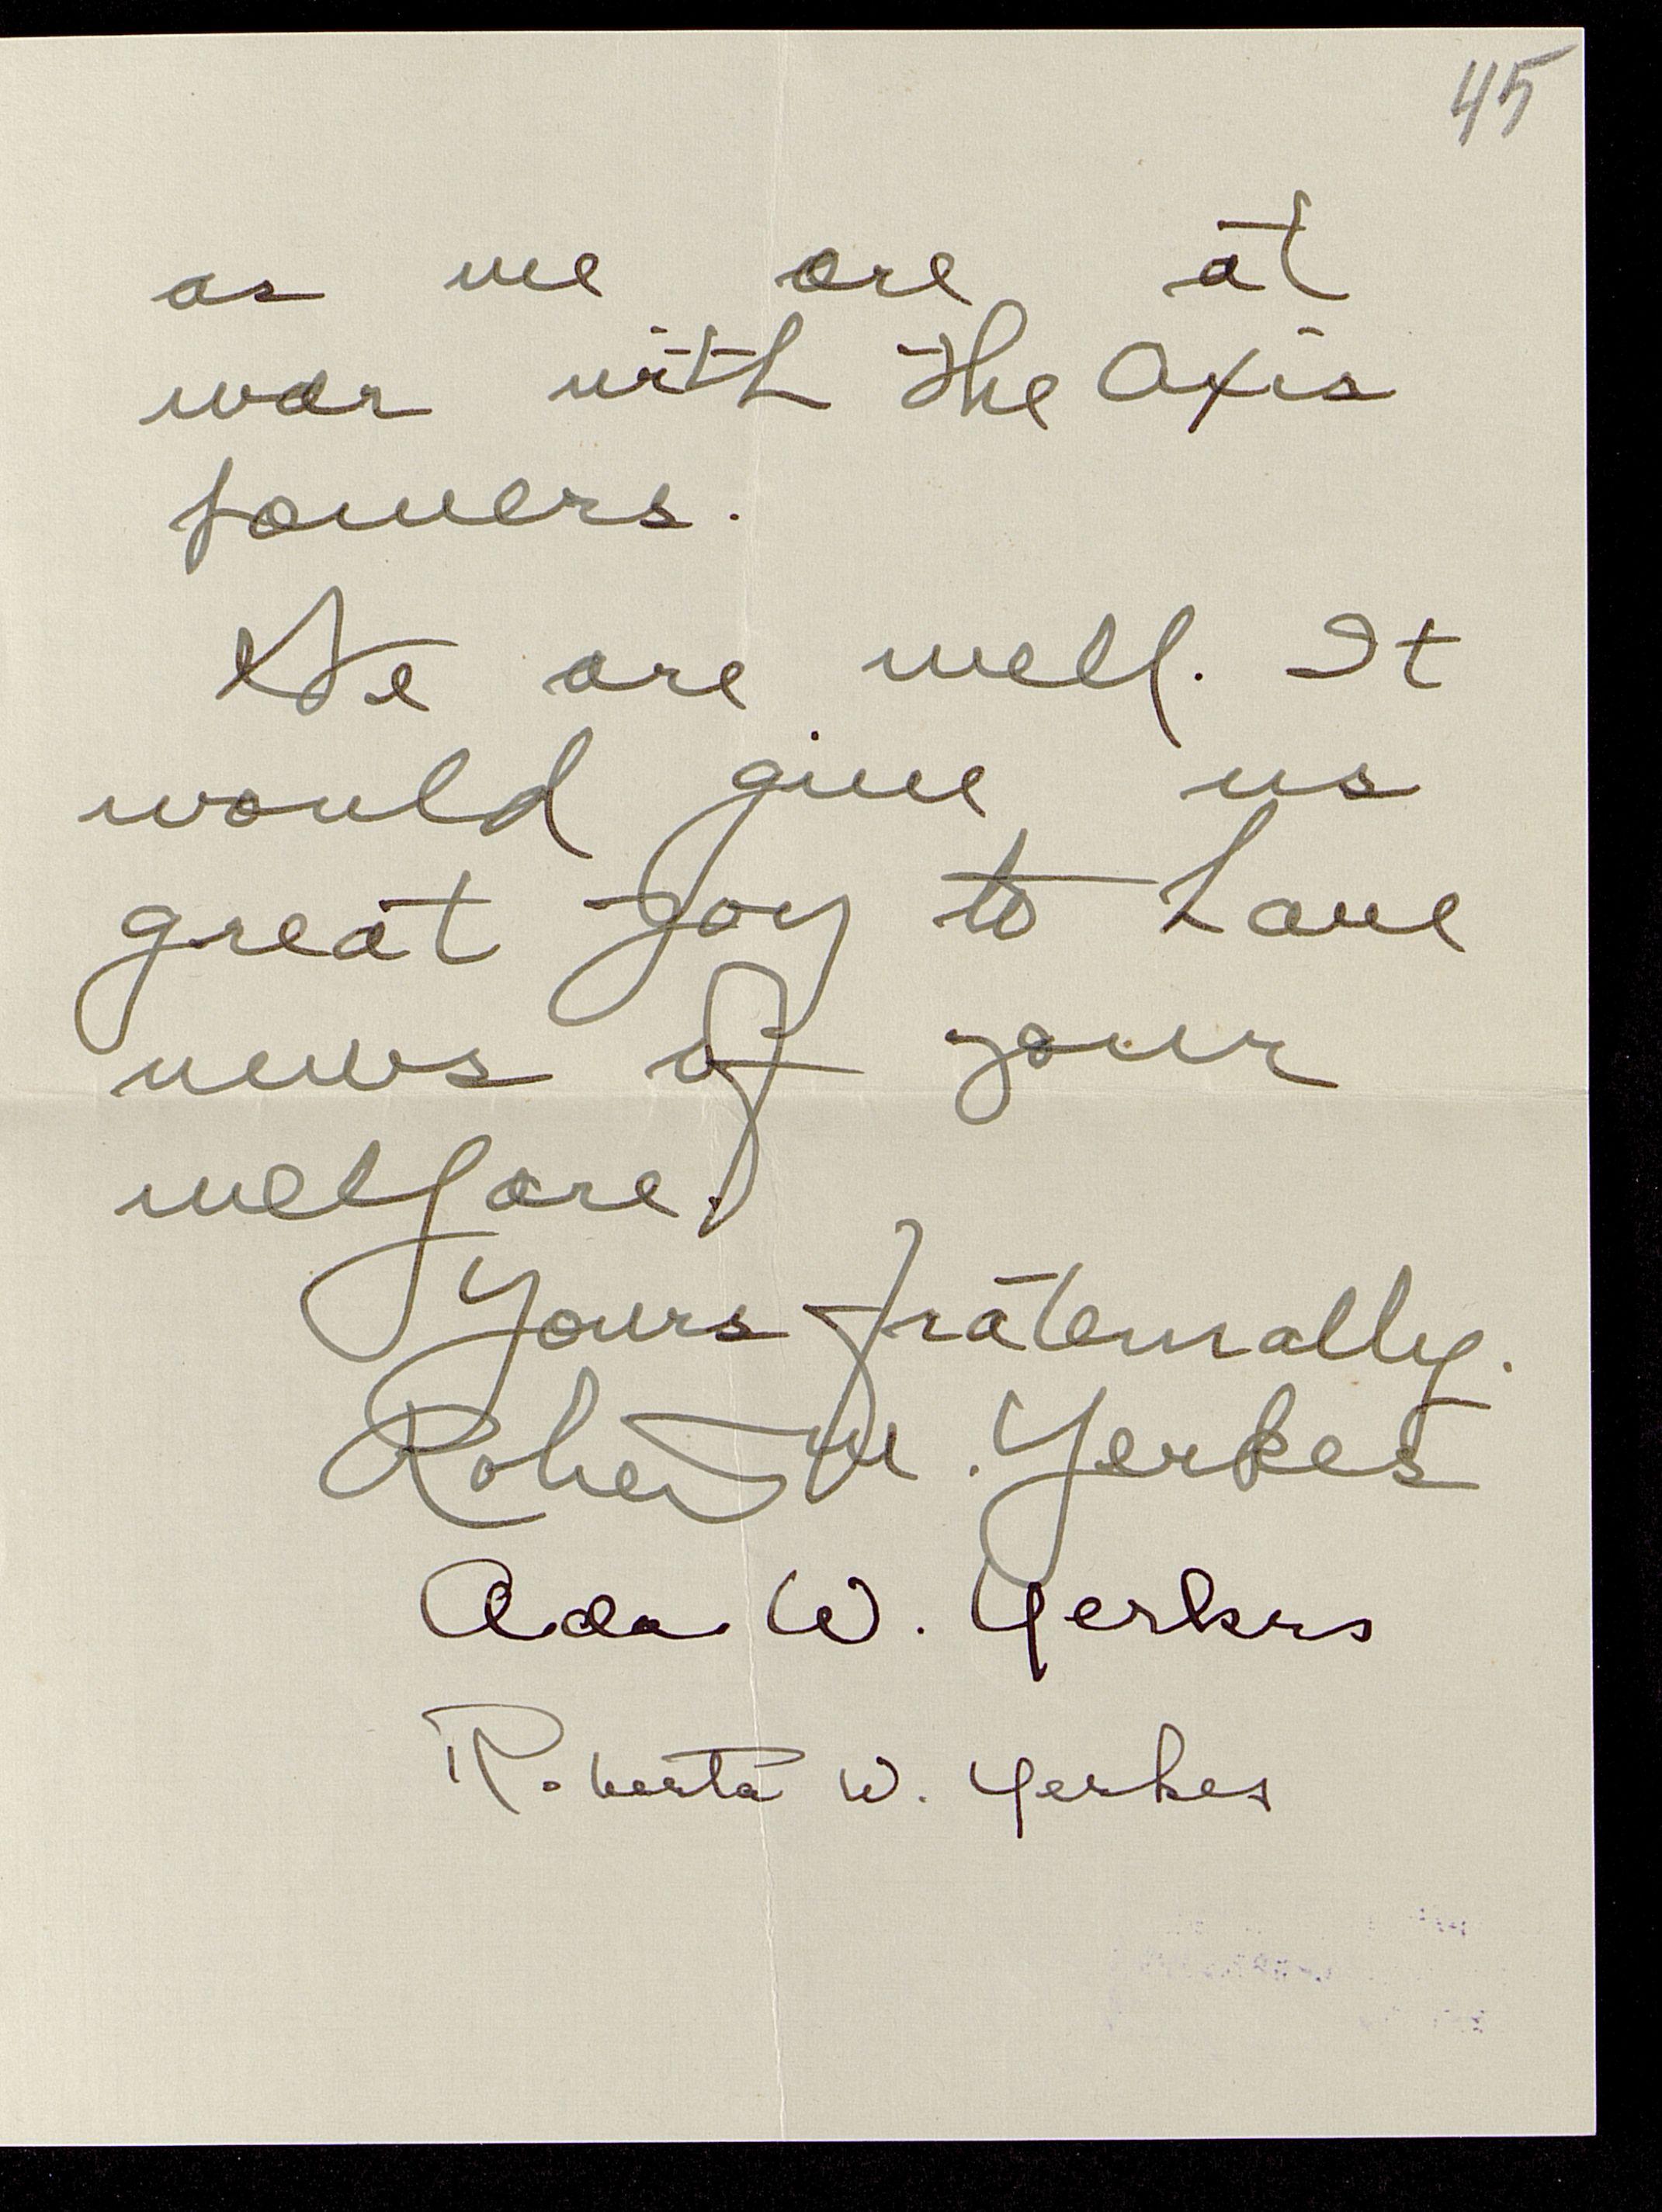 45
as we are at
war with the Axis
powers.
We are well. It
would give us
great joy to have
news of your
welfare.
Yours fraternally.
Robert M. Yerkes
Ada W. Yerkes
Roberta W. Yerkes